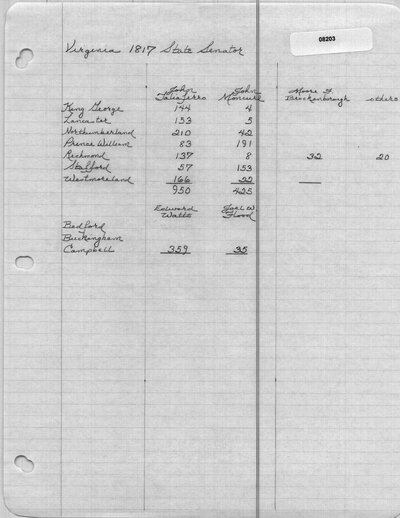 08203
Virginia 1817 State Senator
John Taliaferro John Moncure Moore F. Brockenborough others
King George 144 4
Lancaster 153 5
Northumberland 210 42
Prince William 83 191
Richmond 137 8 32 20
Stafford 57 153
Westmoreland 166 22
950 425
Edward Watts Joel W. Flood
Bedford
Buckingham
Campbell 359 35